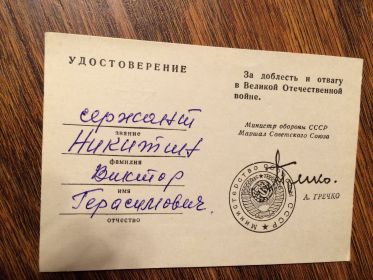 УДОСТОВЕРЕНИЕ
сержант
звание
Никитин
фамилия
Виктор
имя
Герасимович.
отчество
За доблесть и отвагу
в Великой Отечественной
войне.
Министр обороны СССР
Маршал Советского Союза
А. ГРЕЧКО